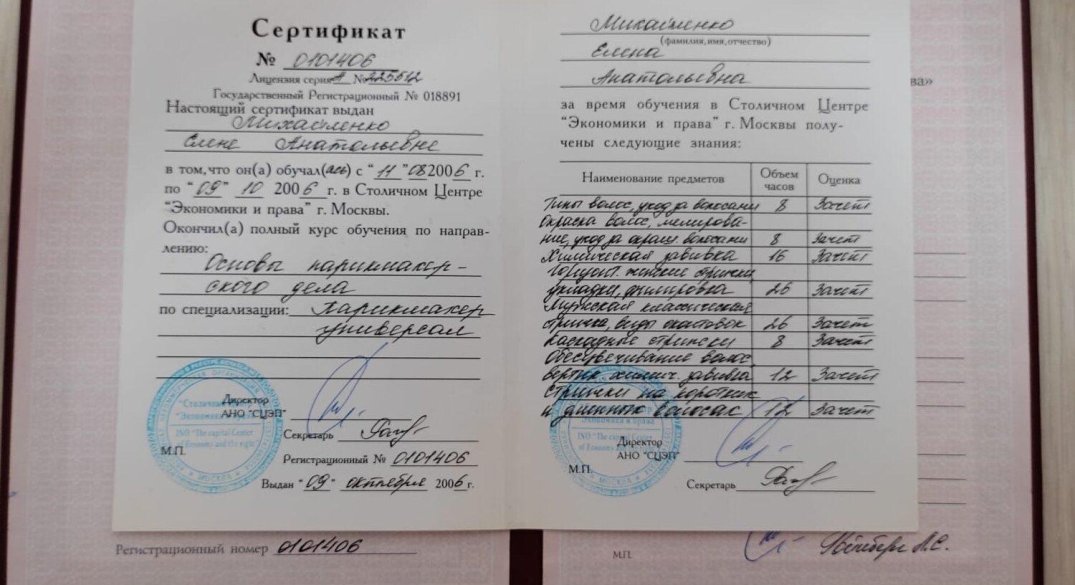 Сертификат
№ 0101406
Лицензия серия А № 225612
Государственный Регистрационный № 018891
Настоящий сертификат выдан
Михайленко
Елене Анатольевне
в том, что он(а) обучал(ась) с "11" 08 2006 г.
по "09" 10 2006 г. в Столичном Центре
"Экономики и права" г. Москвы.
Окончил(а) полный курс обучения по направ-
лению:
Основы парикмахер-
ского дела
по специализации: Парикмахер
универсал
Директор
АНО "СЦЭП"
Секретарь
М.П.
Регистрационный № 0101406
Выдан "09" октября 2006 г.
Михайленко
(фамилия, имя, отчество)
Елена
Анатольевна
за время обучения в Столичном Центре
"Экономики и права" г. Москвы полу-
чены следующие знания:
Наименование предметов Объем часов Оценка
Типы волос, уход за волосами 8 Зачет
окраска волос, мелирова-
ние, уход за окраш волосами 8 Зачет
Химическая завивка 16 Зачет
женские стрижки
укладки, филировка 26 Зачет
Мужская классическая
стрижка, виды окантовок 26 Зачет
Каскадные стрижки 8 Зачет
Обесцвечивание волос
верт. химич завивка 12 Зачет
стрижки на коротких
и длинных волосах 12 Зачет
Директор
АНО "СЦЭП"
М.П.
Секретарь
ва»
Регистрационный номер 0101406
М.П.
INO "The capital Center
of Economy and the right
INO "The capital Center